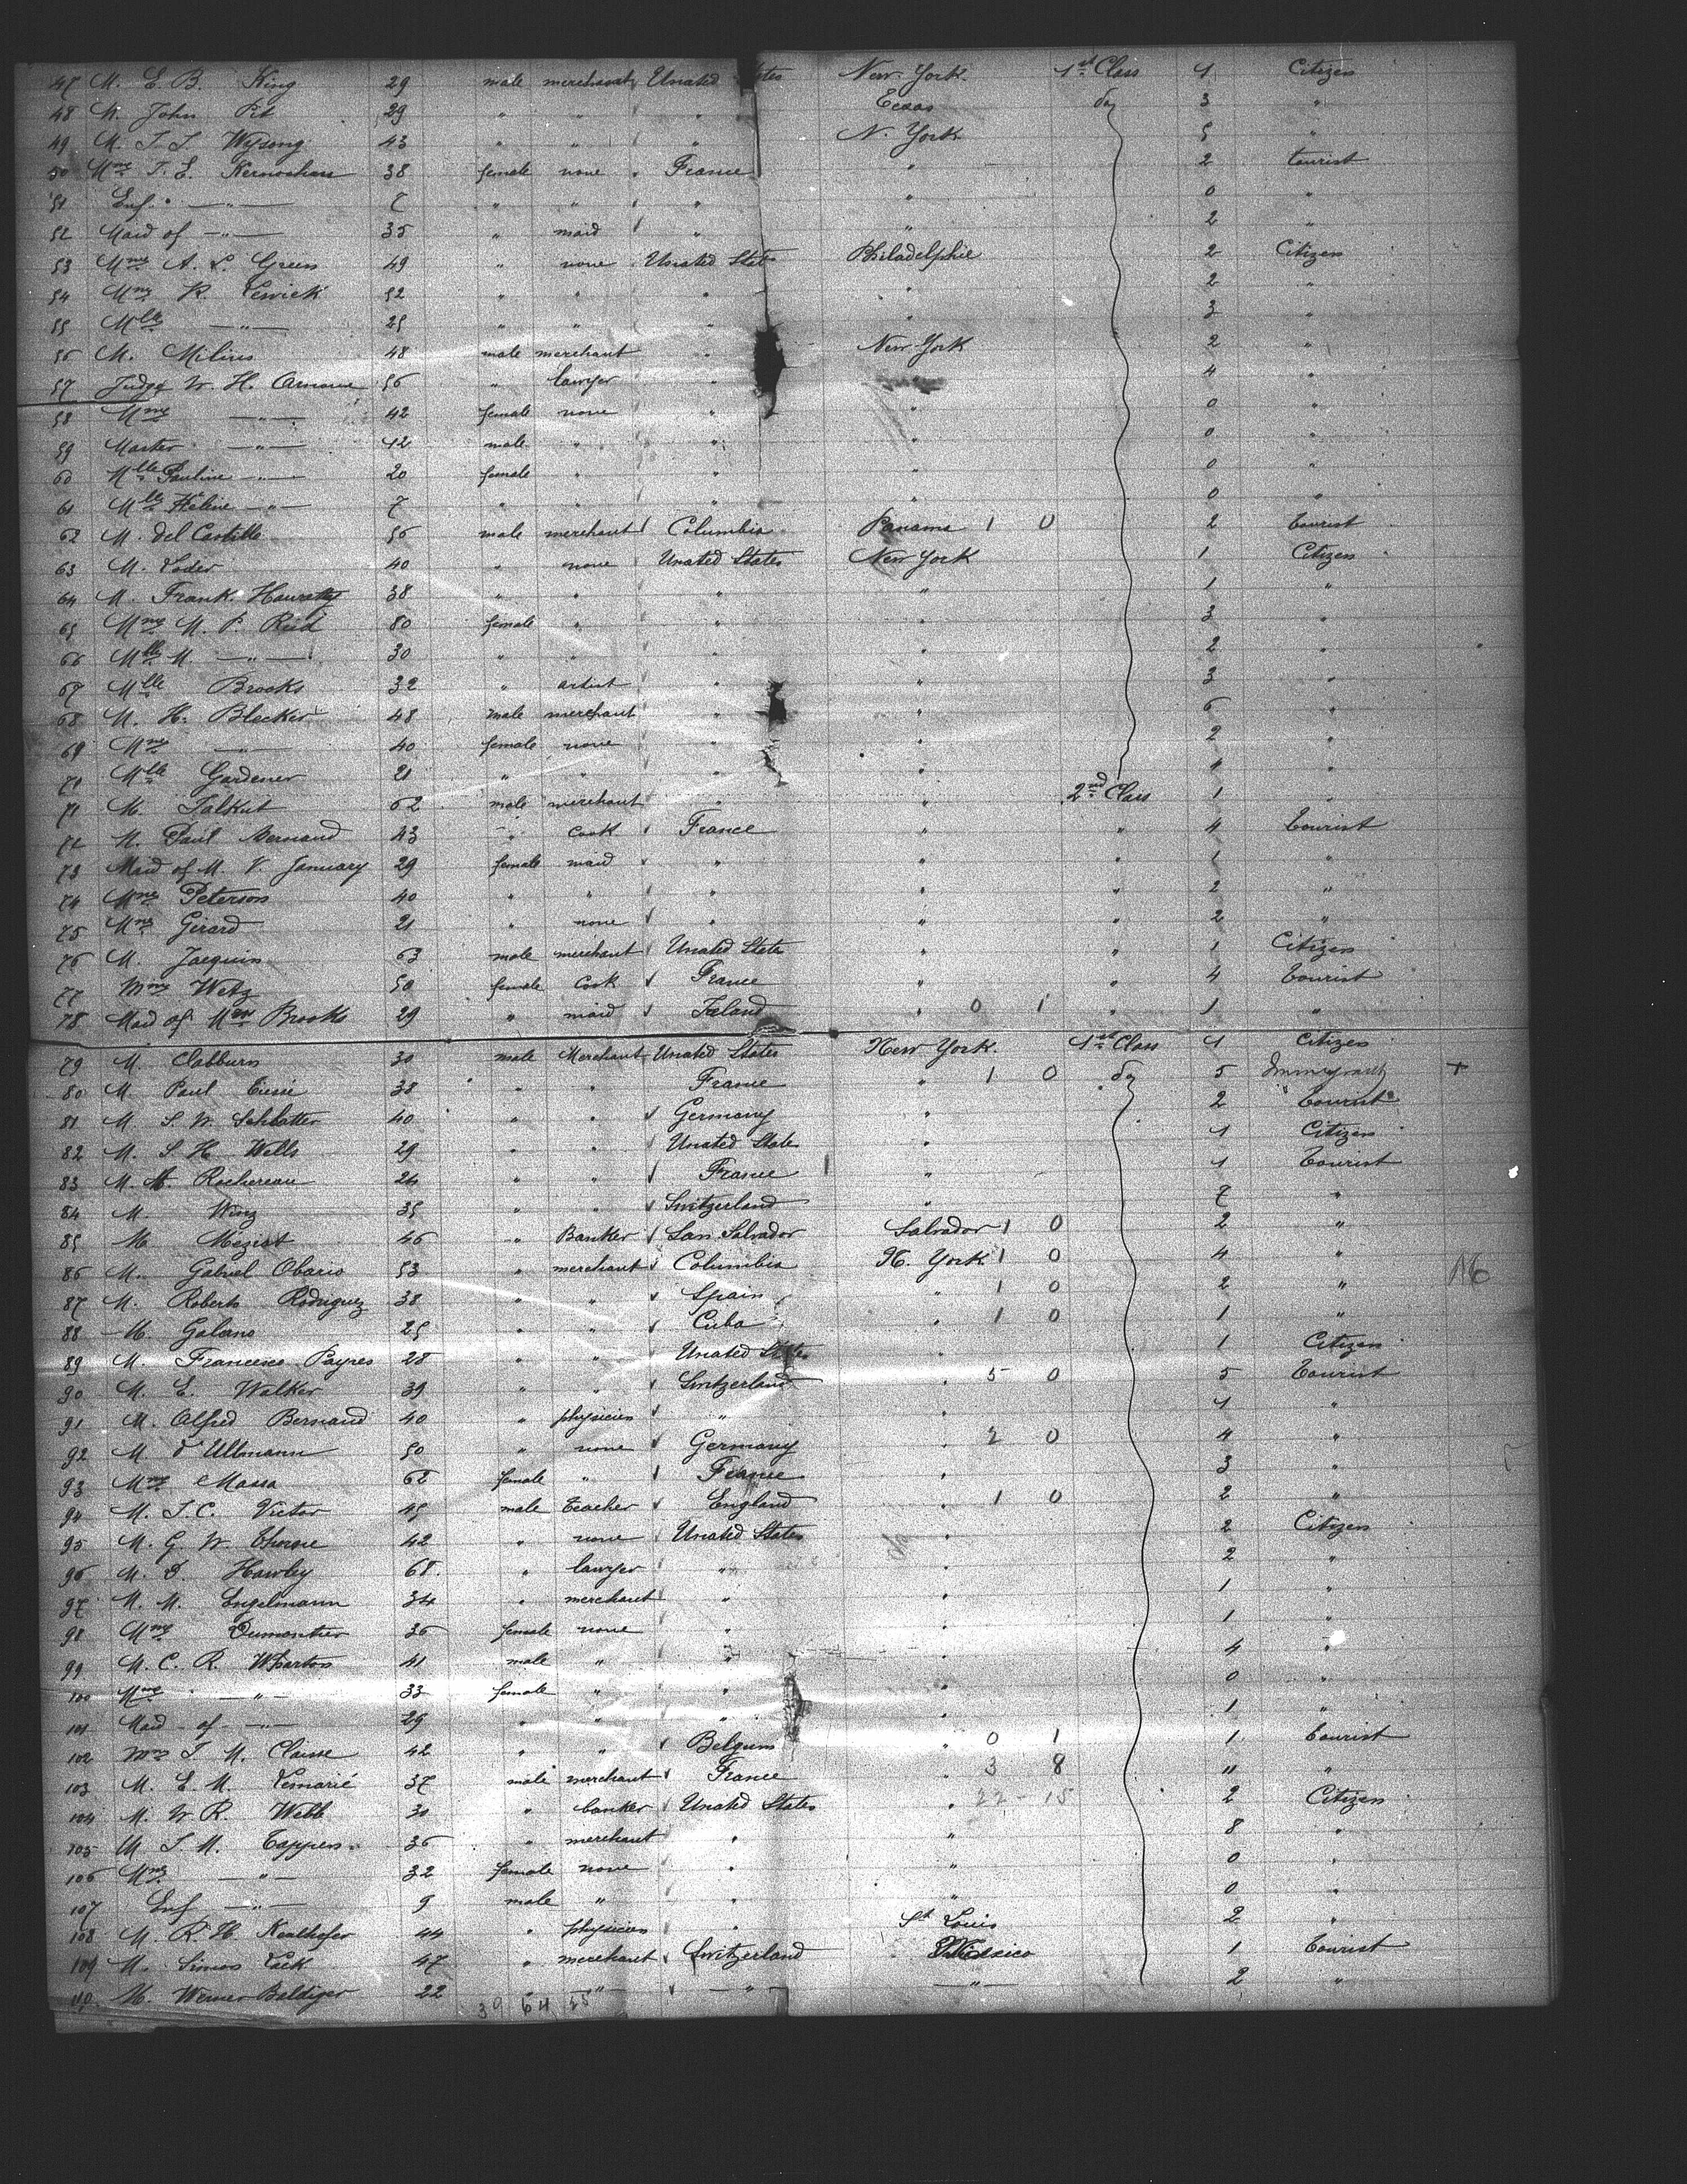 47 M. E. B. King 29 male merchant Unated States New York. 1st Class 1 Citizen
48 M. John Pit 29 " " " Texas do 3 "
49 M. J. J. Wysong 43 " " " N. York 5 "
50 Mme J. E. Kernochan 38 female none " France " 2 tourist
51 Enf. " — " — 7 " " " " 0 "
52 Maid of — " — 35 " maid " " 2 "
53 Mme A. L. Green 49 " none Unated States Philadelphie 2 Citizen
54 Mme R. 52 " " " " 2 "
55 Mlle — " — 25 " " " " 3 "
56 M. Milius 48 male merchant " New York 2 "
57 Judge W. H. Arnoux 56 " lawyer " 4 "
58 Mme — " — 42 female none " " 0 "
59 Master — " — 12 male " " " 0 "
60 Mlle Pauline — " — 20 female " " " 0 "
61 Mlle Hélène — " — 7 " " " " 0 "
62 M. del Castillo 56 male merchant Columbia Panama 1 0 2 tourist
63 M. Loder 40 " none Unated States New York 1 Citizen
64 M. Frank 38 " " " " 1 "
65 Mme M. P. Reid 80 female " " " 3 "
66 Mlle M. — " — 30 " " " " 2 "
67 Mlle Brooks 32 " artist " " 3 "
68 M. H. Blecker 48 male merchant " " 6 "
69 Mme — " — 40 female none " " 2 "
71 Mlle Gardener 21 " " " " 4 "
71 M. Talkut 62 male merchant " " 2nd Class 1 "
72 M. Paul Bernard 43 " cook France " " 4 tourist
73 Maid of M. V. January 29 female maid " " " 1 "
74 Mme Peterson 40 " " " " " 2 "
75 Mme Girard 21 " none " " " 2 "
76 M. Jacquin 63 male merchant Unated State " " 1 Citizen
77 Mme Wetz 50 female Cook France " " 4 tourist
78 Maid of Mme Brooks 29 " maid Ireland " 0 1 " 1 "
79 M. Clabburn 30 male Merchant Unated States New York. 1st Class 1 Citizen
80 M. Paul 38 " " France " 1 0 do 5 Immigrant +
81 M. S. W. Schlatter 40 " " Germany " 2 " tourist
82 M. S. H. Wells 29 " " Unated State " 1 Citizen
83 M. A. Rochereau 24 " " France " 1 tourist
84 M. Winz 35 " " Switzerland " 7 "
85 M. 46 " Banker San Salvador Salvador 1 0 2 "
86 M. Gabriel Obario 53 " merchant Columbia N. York 1 0 4 "
87 M. Roberto Rodriguez 38 " " Spain " 1 0 2 "
88 M. Galano 25 " " Cuba " 1 0 1 "
89 M. Francesco Payres 28 " " Unated States " 1 Citizen
90 M. E. Walker 39 " " Switzerland " 5 0 5 tourist
91 M. Alfred Bernard 40 " physicien " " 1 "
92 M. d'Ullmann 50 " none Germany " 2 0 4 "
93 Mme Massa 62 female " France " 3 "
94 M. J. C. Victor 45 male teacher England " 1 0 2 "
95 M. G. W. Thorne 42 " none Unated States " 2 Citizen
96 M. D. Hawley 68 " lawyer " " 2 "
97 M. M. Engelmann 34 " merchant " " 1 "
98 Mme Dumontier 36 female none " " 1 "
99 M. C. R. Wharton 41 male " " " 4 "
100 Mme — " — 33 female " " " 0 "
101 Maid of — " — 29 " " " " 1 "
102 Mme J. M. Claisse 42 " " Belgium " 0 1 1 tourist
103 M. E. M. Lemarié 37 male merchant France " 3 8 " "
104 M. W. R. Webb 30 " banker Unated States " 22 - 15 2 Citizen
105 M. J. M. Tappen 36 " merchant " " 8 "
106 Mme — " — 32 female none " " 0 "
107 Enf — " — 9 male " " " 0 "
108 M. R. H. Kealhofer 44 " physicien " St Louis 2 "
109 M. Simon 47 " merchant Switzerland Mexico 1 tourist
110 M. Werner Baldiger 22 " — " — — " — — " — 2 "
39 64 25